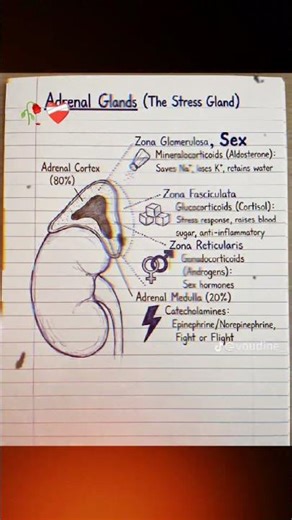 Adrenal Glands (The Stress Gland)
Zona Glomerulosa, Sex
Mineralocorticoids (Aldosterone):
Saves Na⁺, loses K⁺, retains water
Adrenal Cortex
(80%)
Zona Fasciculata
Glucocorticoids (Cortisol):
Stress response, raises blood
sugar, anti-inflammatory
Zona Reticularis
Gonadocorticoids
(Androgens):
Sex hormones
Adrenal Medulla (20%)
Catecholamines:
Epinephrine/Norepinephrine,
Fight or Flight